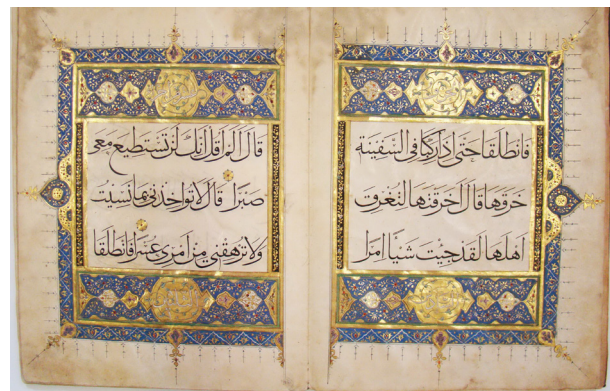 فانطلقا حتى اذا ركبا في السفينة
خرقها قال اخرقتها لتغرق
اهلها لقد جئت شيئا امرا
قال الم اقل انك لن تستطيع معي
صبرا قال لا تواخذني بما نسيت
ولا ترهقني من امري عسرا فانطلقا